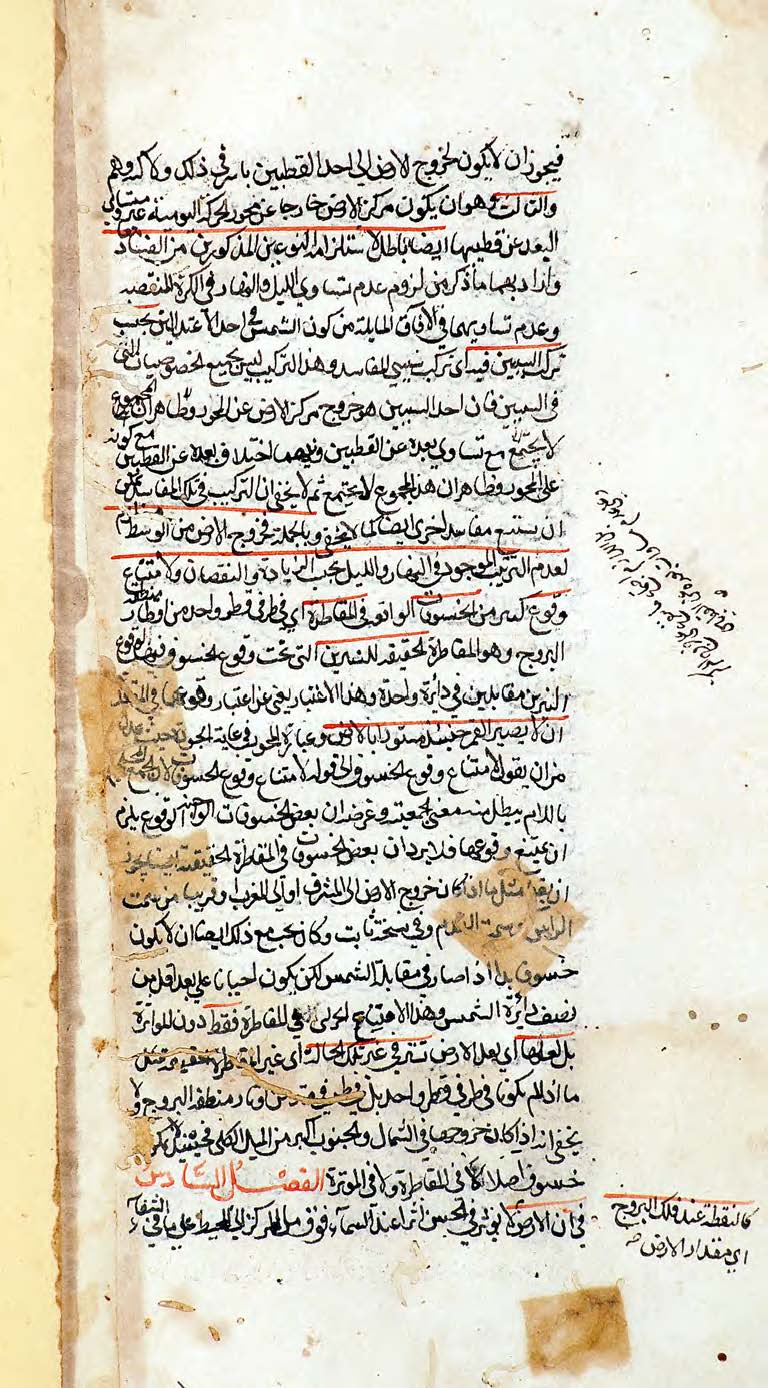 فيجوز ان لا يكون لخروج الارض الى احد القطبين باسر في ذلك ولا كه وهم
والثالث وهو ان يكون مركز الارض خارجا عن محور الحركة اليومية غير متساوي
البعد عن قطبيها ايضا باطل لاستلزامه النوعين المذكورين من الفساد
واراد بهما ما ذكر من لزوم عدم تساوي الليل والنهار في الكرة المنتصبة
وعدم تساويهما في الآفاق المايلة من كون الشمس في احد الاعتدالين بحسب
تركب السببين فيه اى تركب سببي المفاسد وهذا التركيب ليس بجميع الخصوصيات التى
في السببين فان احد السببين هو خروج مركز الارض عن المحور وظاهر ان المجموع
لا يجتمع مع تساوي بعده عن القطبين وفيهما اختلاف بعده عن القطبين مع كونه
على المحور وظاهر ان هذا المجموع لا يجتمع ثم لا يخفى ان التركيب في تلك المفاسد
ان يستتبع مفاسد اخرى ايضا كما لا يخفى وبالجملة فخروج الارض من الوسط
لعدم الترتيب الموجود في النهار والليل بحسب الزيادة والنقصان ولامتناع
وقوع كثير من الخسوفات الواقع في المقاطرة اي في طرفي قطر واحد من اقطار منطقة
البروج وهو المقاطرة الحقيقية للنيرين التى تحت وقوع الخسوف وقوع
النيرين مقابلين في دائرة واحدة وهذا الاعتبار يغني عن اعتبار وقوعهما في
ان لا يصير القمر حينئذ مستورا بالارض وعبارة المحور في غاية الجودة حيث عدل
من ان يقول لامتناع وقوع الخسوف الى قوله لامتناع وقوع الخسوفات لان الجمع المحلى
باللام يبطل منه معنى الجمعية وغرضه ان بعض الخسوفات الواجب الوقوع يلزم
ان يمتنع وقوعها فلا يرد ان بعض الخسوفات في المقاطرة الحقيقية ايضا يجوز
ان يقع مثل ما اذا كان خروج الارض الى المشرق او الى المغرب او قريبا من سمت
الراس وسمت القدم وفي نسخة ثابت وكان يجب مع ذلك ايضا ان لا يكون
خسوف بل اذا صار في مقابلة الشمس لكن يكون احيانا على بعد اقل من
نصف دائرة الشمس وهذا الامتناع الجزئي في المقاطرة فقط دون المواترة
بل لعلها اي بعد الارض تستر في غير تلك الحالة اى غير المقاطرة الحقيقية مثل
ما اذا لم يكونا في طرفي قطر واحد بل في طرفي قوس وتر من منطقة البروج ولا
يخفى انه اذا كان خروجها في الشمال والجنوب اكثر من الميل الكلى فحينئذ لا يكون
خسوف اصلا لا في المقاطرة ولا في الموترة الفصل السادس
في ان الارض لا يؤثر في الحس اثرا عند السماء فوق مل المركز الى المحيط على ما في الشفاء
كالنقطة عند فلك البروج
اي مقدار الارض صه